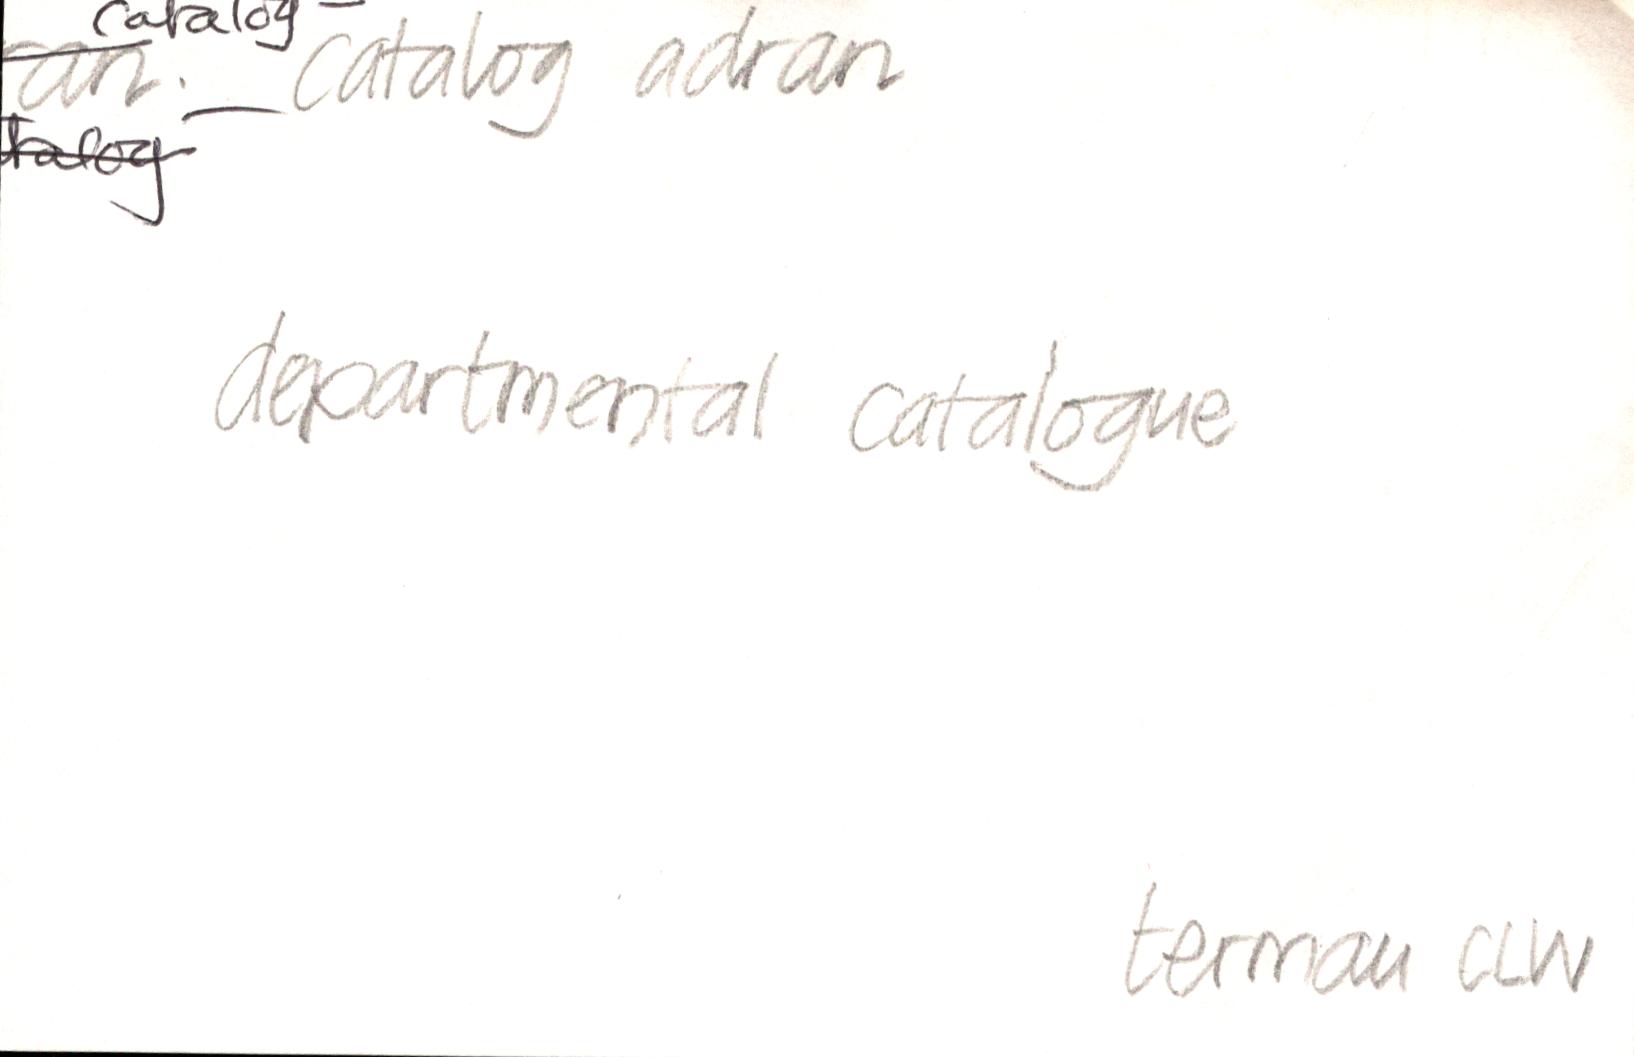 catalog
an. catalog adran
talog
departmental catalogue
termau CLW